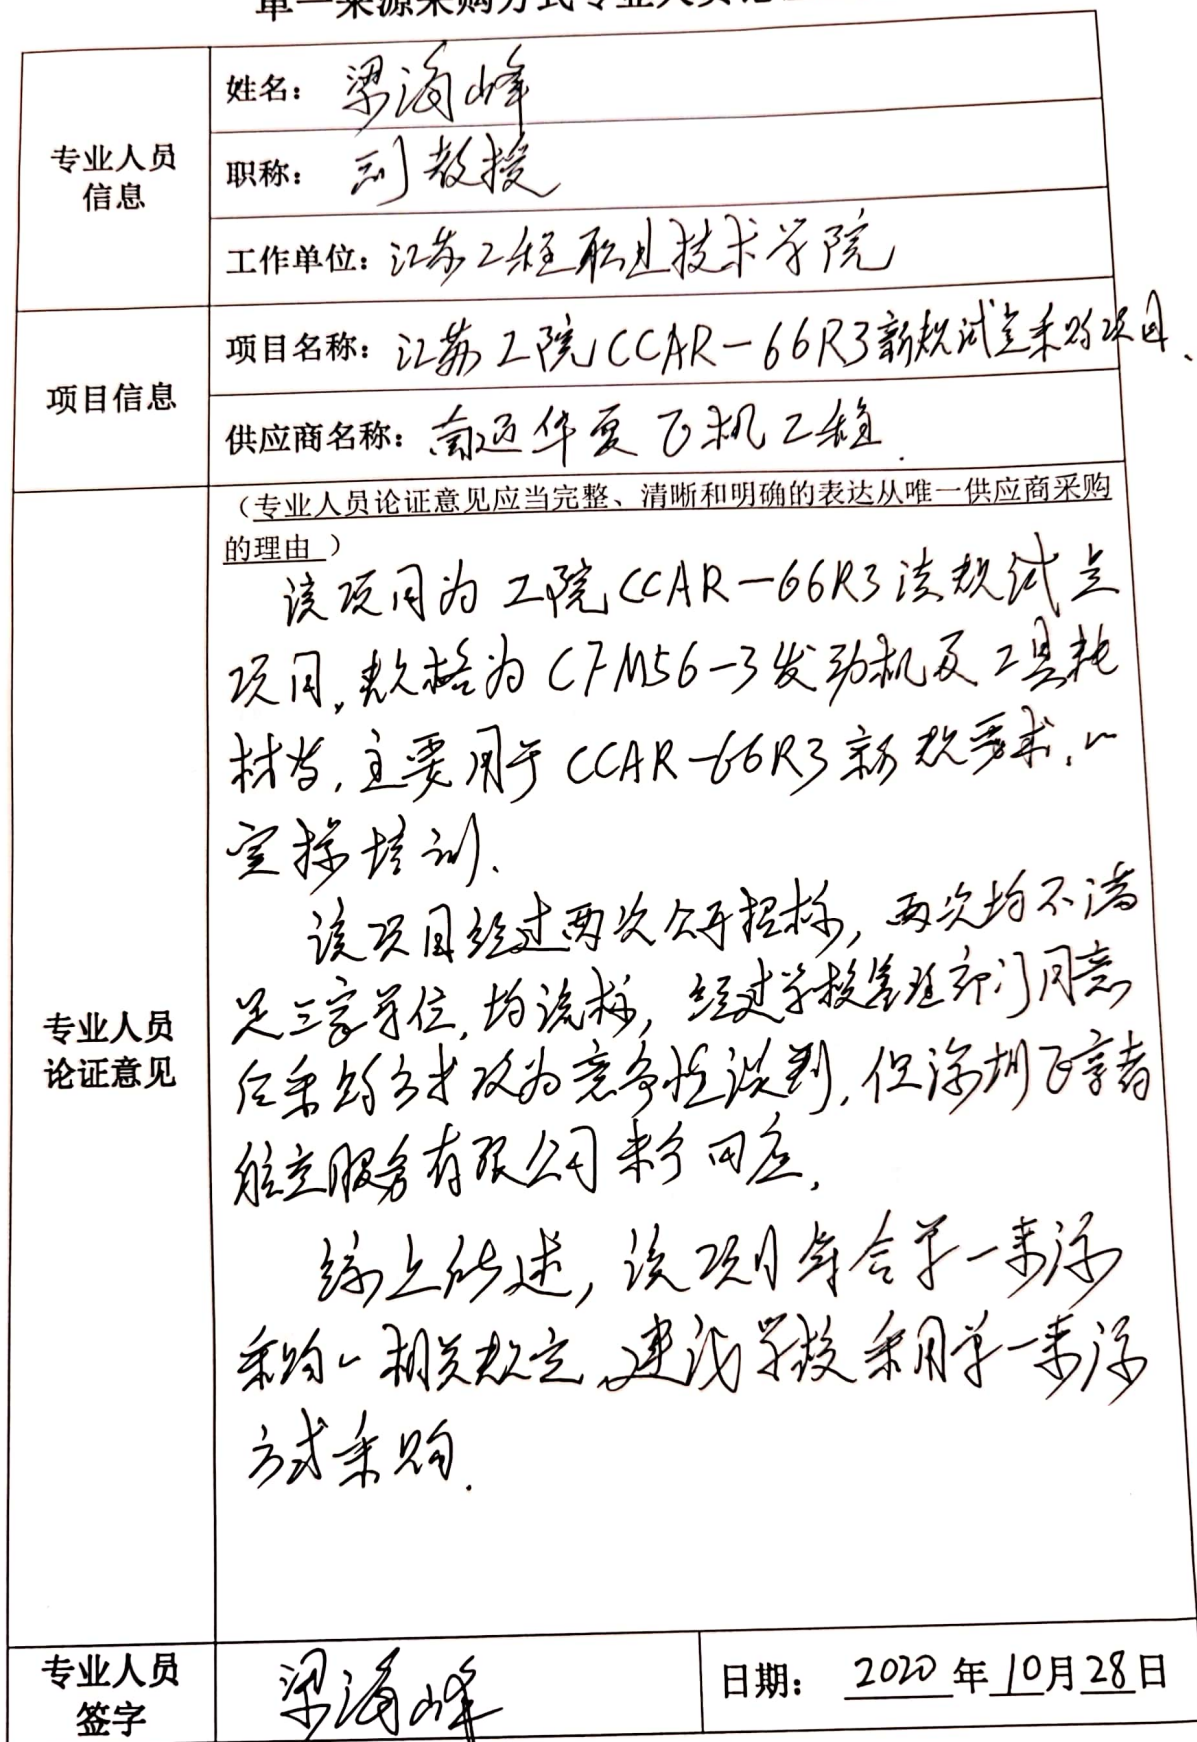 单一来源采购方式专业人员论
专业人员
信息
姓名：梁海峰
职称：副教授
工作单位：江苏工程职业技术学院
项目信息
项目名称：江苏工院CCAR-66R3新规试点采购项目.
供应商名称：南通华夏飞机工程.
专业人员
论证意见
（专业人员论证意见应当完整、清晰和明确的表达从唯一供应商采购
的理由 ）
该项目为工院CCAR-66R3法规试点
项目，规格为CFM56-3发动机及工具耗
材等，主要用于CCAR-66R3新规要求的
实操培训.
该项目经过两次公开招标，两次均不满
足三家单位，均流标，经过学校管理部门同意
后采购方式改为竞争性谈判，但深圳飞享者
航空服务有限公司未予回应，
综上所述，该项目符合单一来源
采购的相关规定，建议学校采用单一来源
方式采购.
专业人员
签字
梁海峰
日期：2020年10月28日